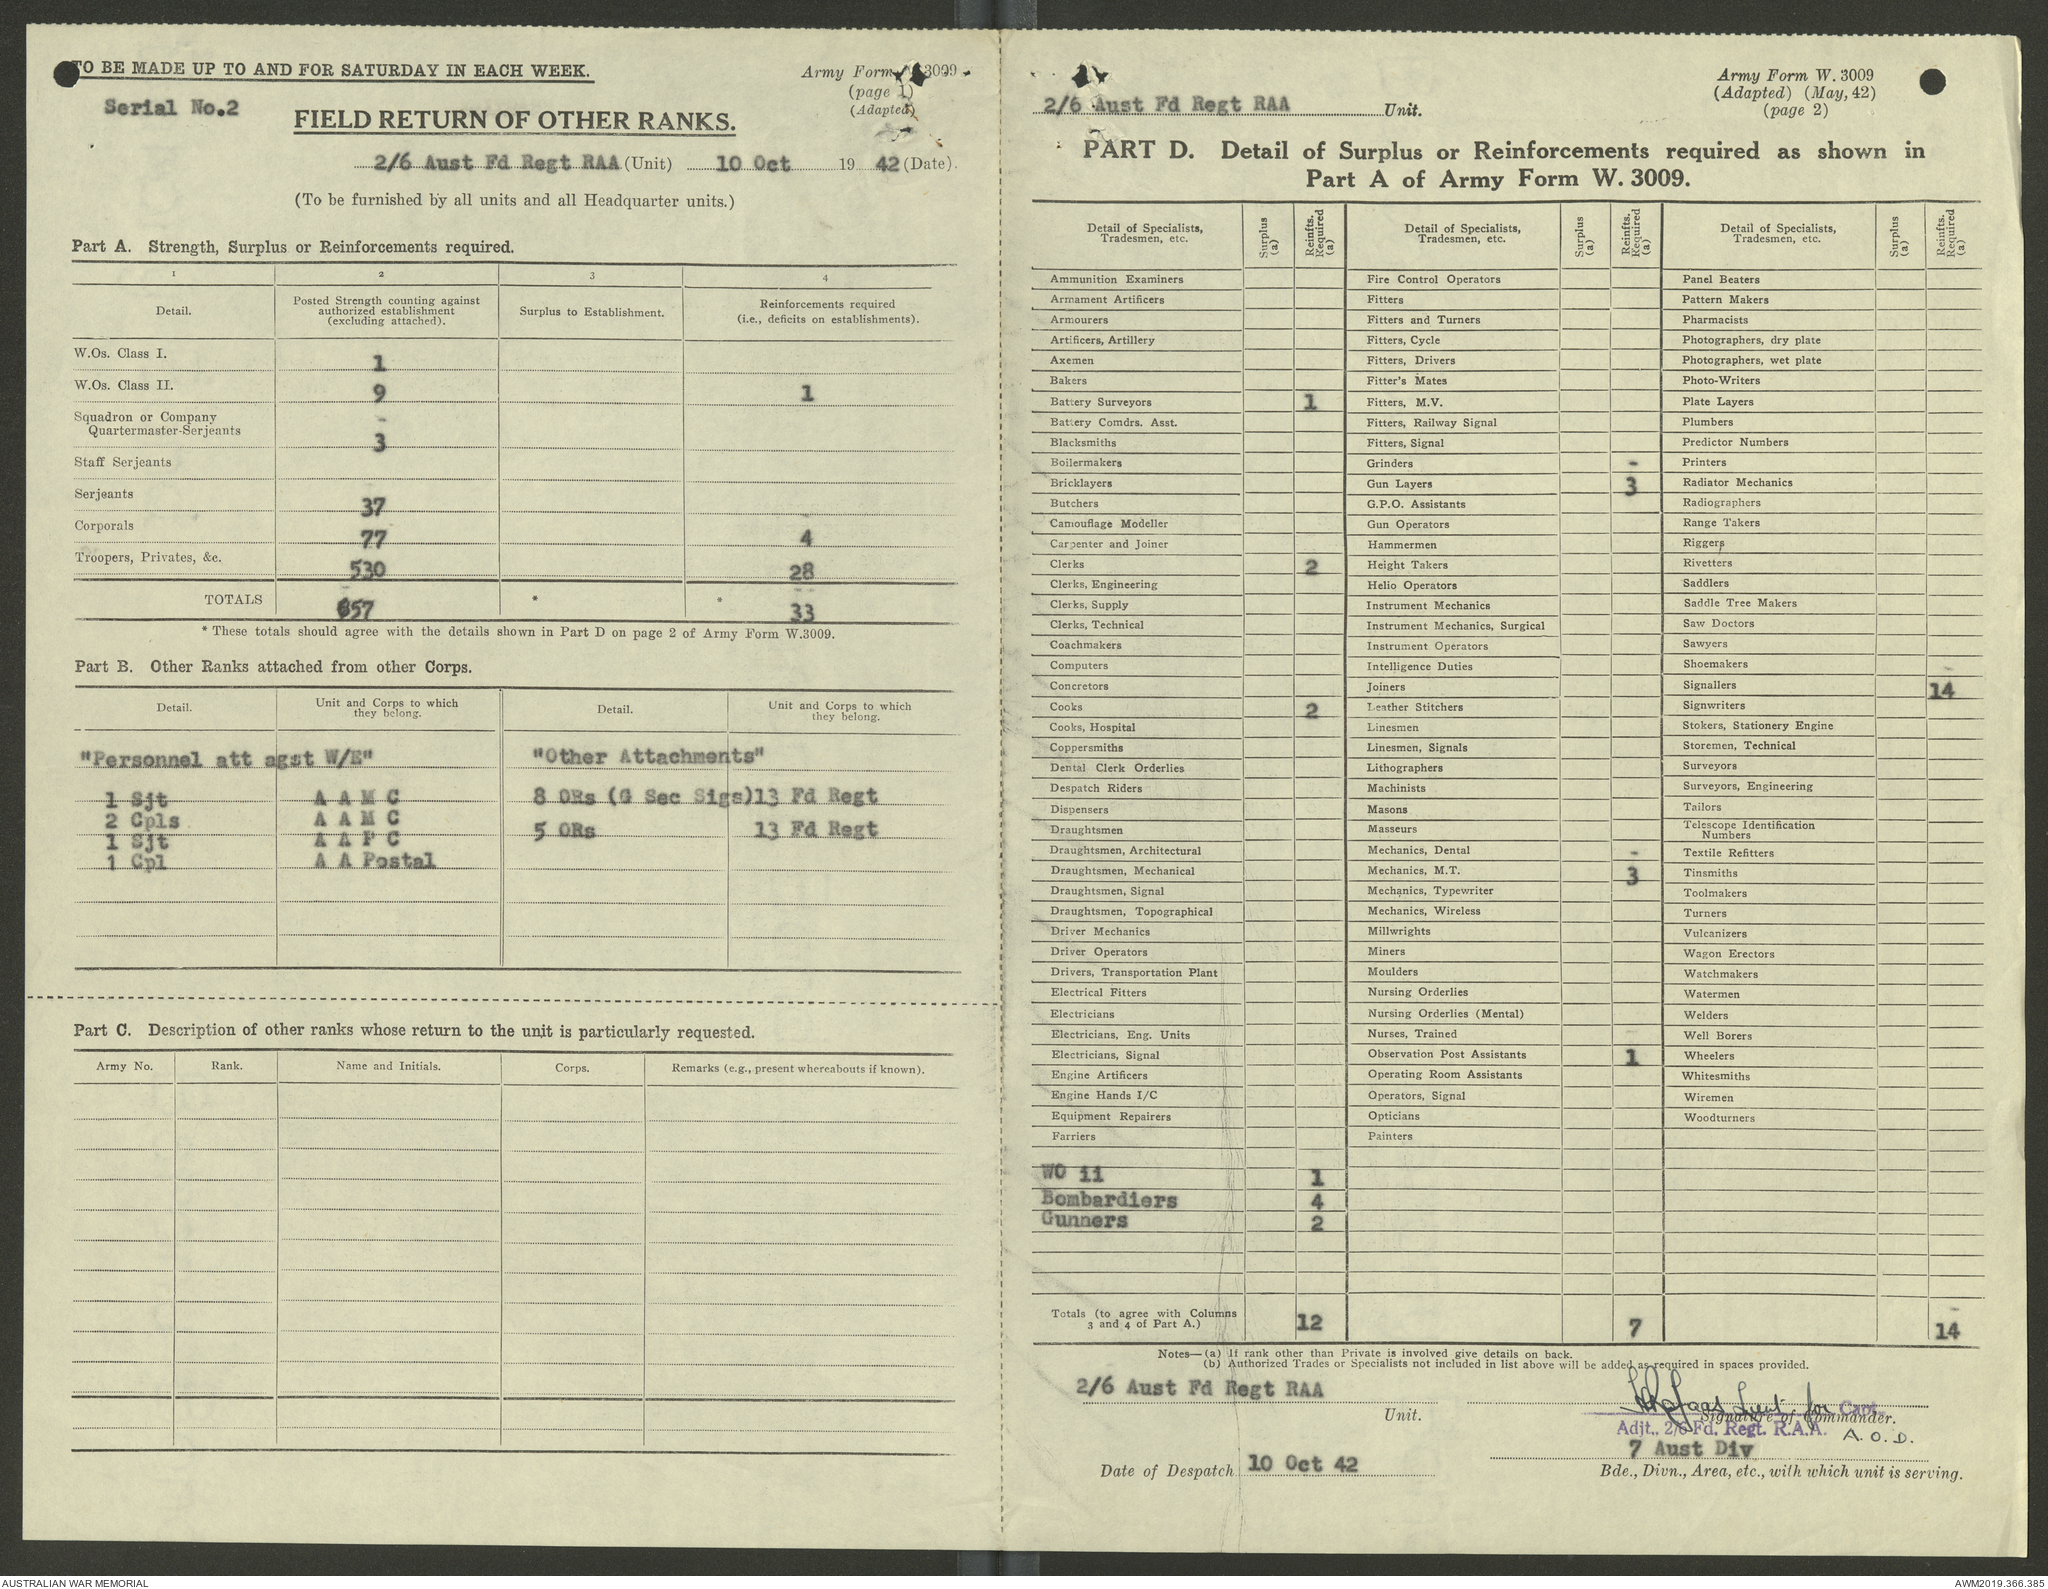 TO BE MADE UP TO AND FOR SATURDAY IN EACH WEEK.
Army Form W. 3009
(page 1)
(Adapted)
Serial No.2
FIELD RETURN OF OTHER RANKS.
2/6 Aust Fd Regt RAA (Unit) 10 Oct 19 42 (Date).
(To be furnished by all units and all Headquarter units.)
Part A. Strength, Surplus or Reinforcements required.
1 2 3 4
Detail. Posted Strength counting against authorized establishment (excluding attached). Surplus to Establishment. Reinforcements required (i.e., deficits on establishments).
W.Os. Class I. 1
W.Os. Class II. 9 1
Squadron or Company
Quartermaster-Serjeants 3
Staff Serjeants
Serjeants 37
Corporals 77 4
Troopers, Privates, &c. 530 28
TOTALS 657 * * 33
* These totals should agree with the details shown in Part D on page 2 of Army Form W.3009.
Part B. Other Ranks attached from other Corps.
Detail. Unit and Corps to which they belong. Detail. Unit and Corps to which they belong.
"Personnel att agst W/E" "Other Attachments"
1 Sjt A A M C 8 ORs (G Sec Sigs) 13 Fd Regt
2 Cpls A A M C
1 Sjt A A P C 5 ORs 13 Fd Regt
1 Cpl A A Postal
Part C. Description of other ranks whose return to the unit is particularly requested.
Army No. Rank. Name and Initials. Corps. Remarks (e.g., present whereabouts if known).
2/6 Aust Fd Regt RAA Unit.
Army Form W. 3009
(Adapted) (May, 42)
(page 2)
PART D. Detail of Surplus or Reinforcements required as shown in
Part A of Army Form W. 3009.
Detail of Specialists, Tradesmen, etc. Surplus (a) Reinfts. Required (a) Detail of Specialists, Tradesmen, etc. Surplus (a) Reinfts. Required (a) Detail of Specialists, Tradesmen, etc. Surplus (a) Reinfts. Required (a)
Ammunition Examiners Fire Control Operators Panel Beaters
Armament Artificers Fitters Pattern Makers
Armourers Fitters and Turners Pharmacists
Artificers, Artillery Fitters, Cycle Photographers, dry plate
Axemen Fitters, Drivers Photographers, wet plate
Bakers Fitter's Mates Photo-Writers
Battery Surveyors 1 Fitters, M.V. Plate Layers
Battery Comdrs. Asst. Fitters, Railway Signal Plumbers
Blacksmiths Fitters, Signal Predictor Numbers
Boilermakers Grinders Printers
Bricklayers Gun Layers 3 Radiator Mechanics
Butchers G.P.O. Assistants Radiographers
Camouflage Modeller Gun Operators Range Takers
Carpenter and Joiner Hammermen Riggers
Clerks 2 Height Takers Rivetters
Clerks, Engineering Helio Operators Saddlers
Clerks, Supply Instrument Mechanics Saddle Tree Makers
Clerks, Technical Instrument Mechanics, Surgical Saw Doctors
Coachmakers Instrument Operators Sawyers
Computers Intelligence Duties Shoemakers
Concretors Joiners Signallers 14
Cooks 2 Leather Stitchers Signwriters
Cooks, Hospital Linesmen Stokers, Stationery Engine
Coppersmiths Linesmen, Signals Storemen, Technical
Dental Clerk Orderlies Lithographers Surveyors
Despatch Riders Machinists Surveyors, Engineering
Dispensers Masons Tailors
Draughtsmen Masseurs Telescope Identification Numbers
Draughtsmen, Architectural Mechanics, Dental Textile Refitters
Draughtsmen, Mechanical Mechanics, M.T. 3 Tinsmiths
Draughtsmen, Signal Mechanics, Typewriter Toolmakers
Draughtsmen, Topographical Mechanics, Wireless Turners
Driver Mechanics Millwrights Vulcanizers
Driver Operators Miners Wagon Erectors
Drivers, Transportation Plant Moulders Watchmakers
Electrical Fitters Nursing Orderlies Watermen
Electricians Nursing Orderlies (Mental) Welders
Electricians, Eng. Units Nurses, Trained Well Borers
Electricians, Signal Observation Post Assistants 1 Wheelers
Engine Artificers Operating Room Assistants Whitesmiths
Engine Hands I/C Operators, Signal Wiremen
Equipment Repairers Opticians Woodturners
Farriers Painters
WO ii 1
Bombardiers 4
Gunners 2
Totals (to agree with Columns 3 and 4 of Part A.) 12 7 14
Notes—(a) If rank other than Private is involved give details on back.
(b) Authorized Trades or Specialists not included in list above will be added as required in spaces provided.
2/6 Aust Fd Regt RAA
Unit.
Lieut for Capt.,
Signature of Commander.
Adjt., 2/6 Fd. Regt. R.A.A. A.O.D.
7 Aust Div
Date of Despatch 10 Oct 42
Bde., Divn., Area, etc., with which unit is serving.
AUSTRALIAN WAR MEMORIAL
AWM2019.366.385